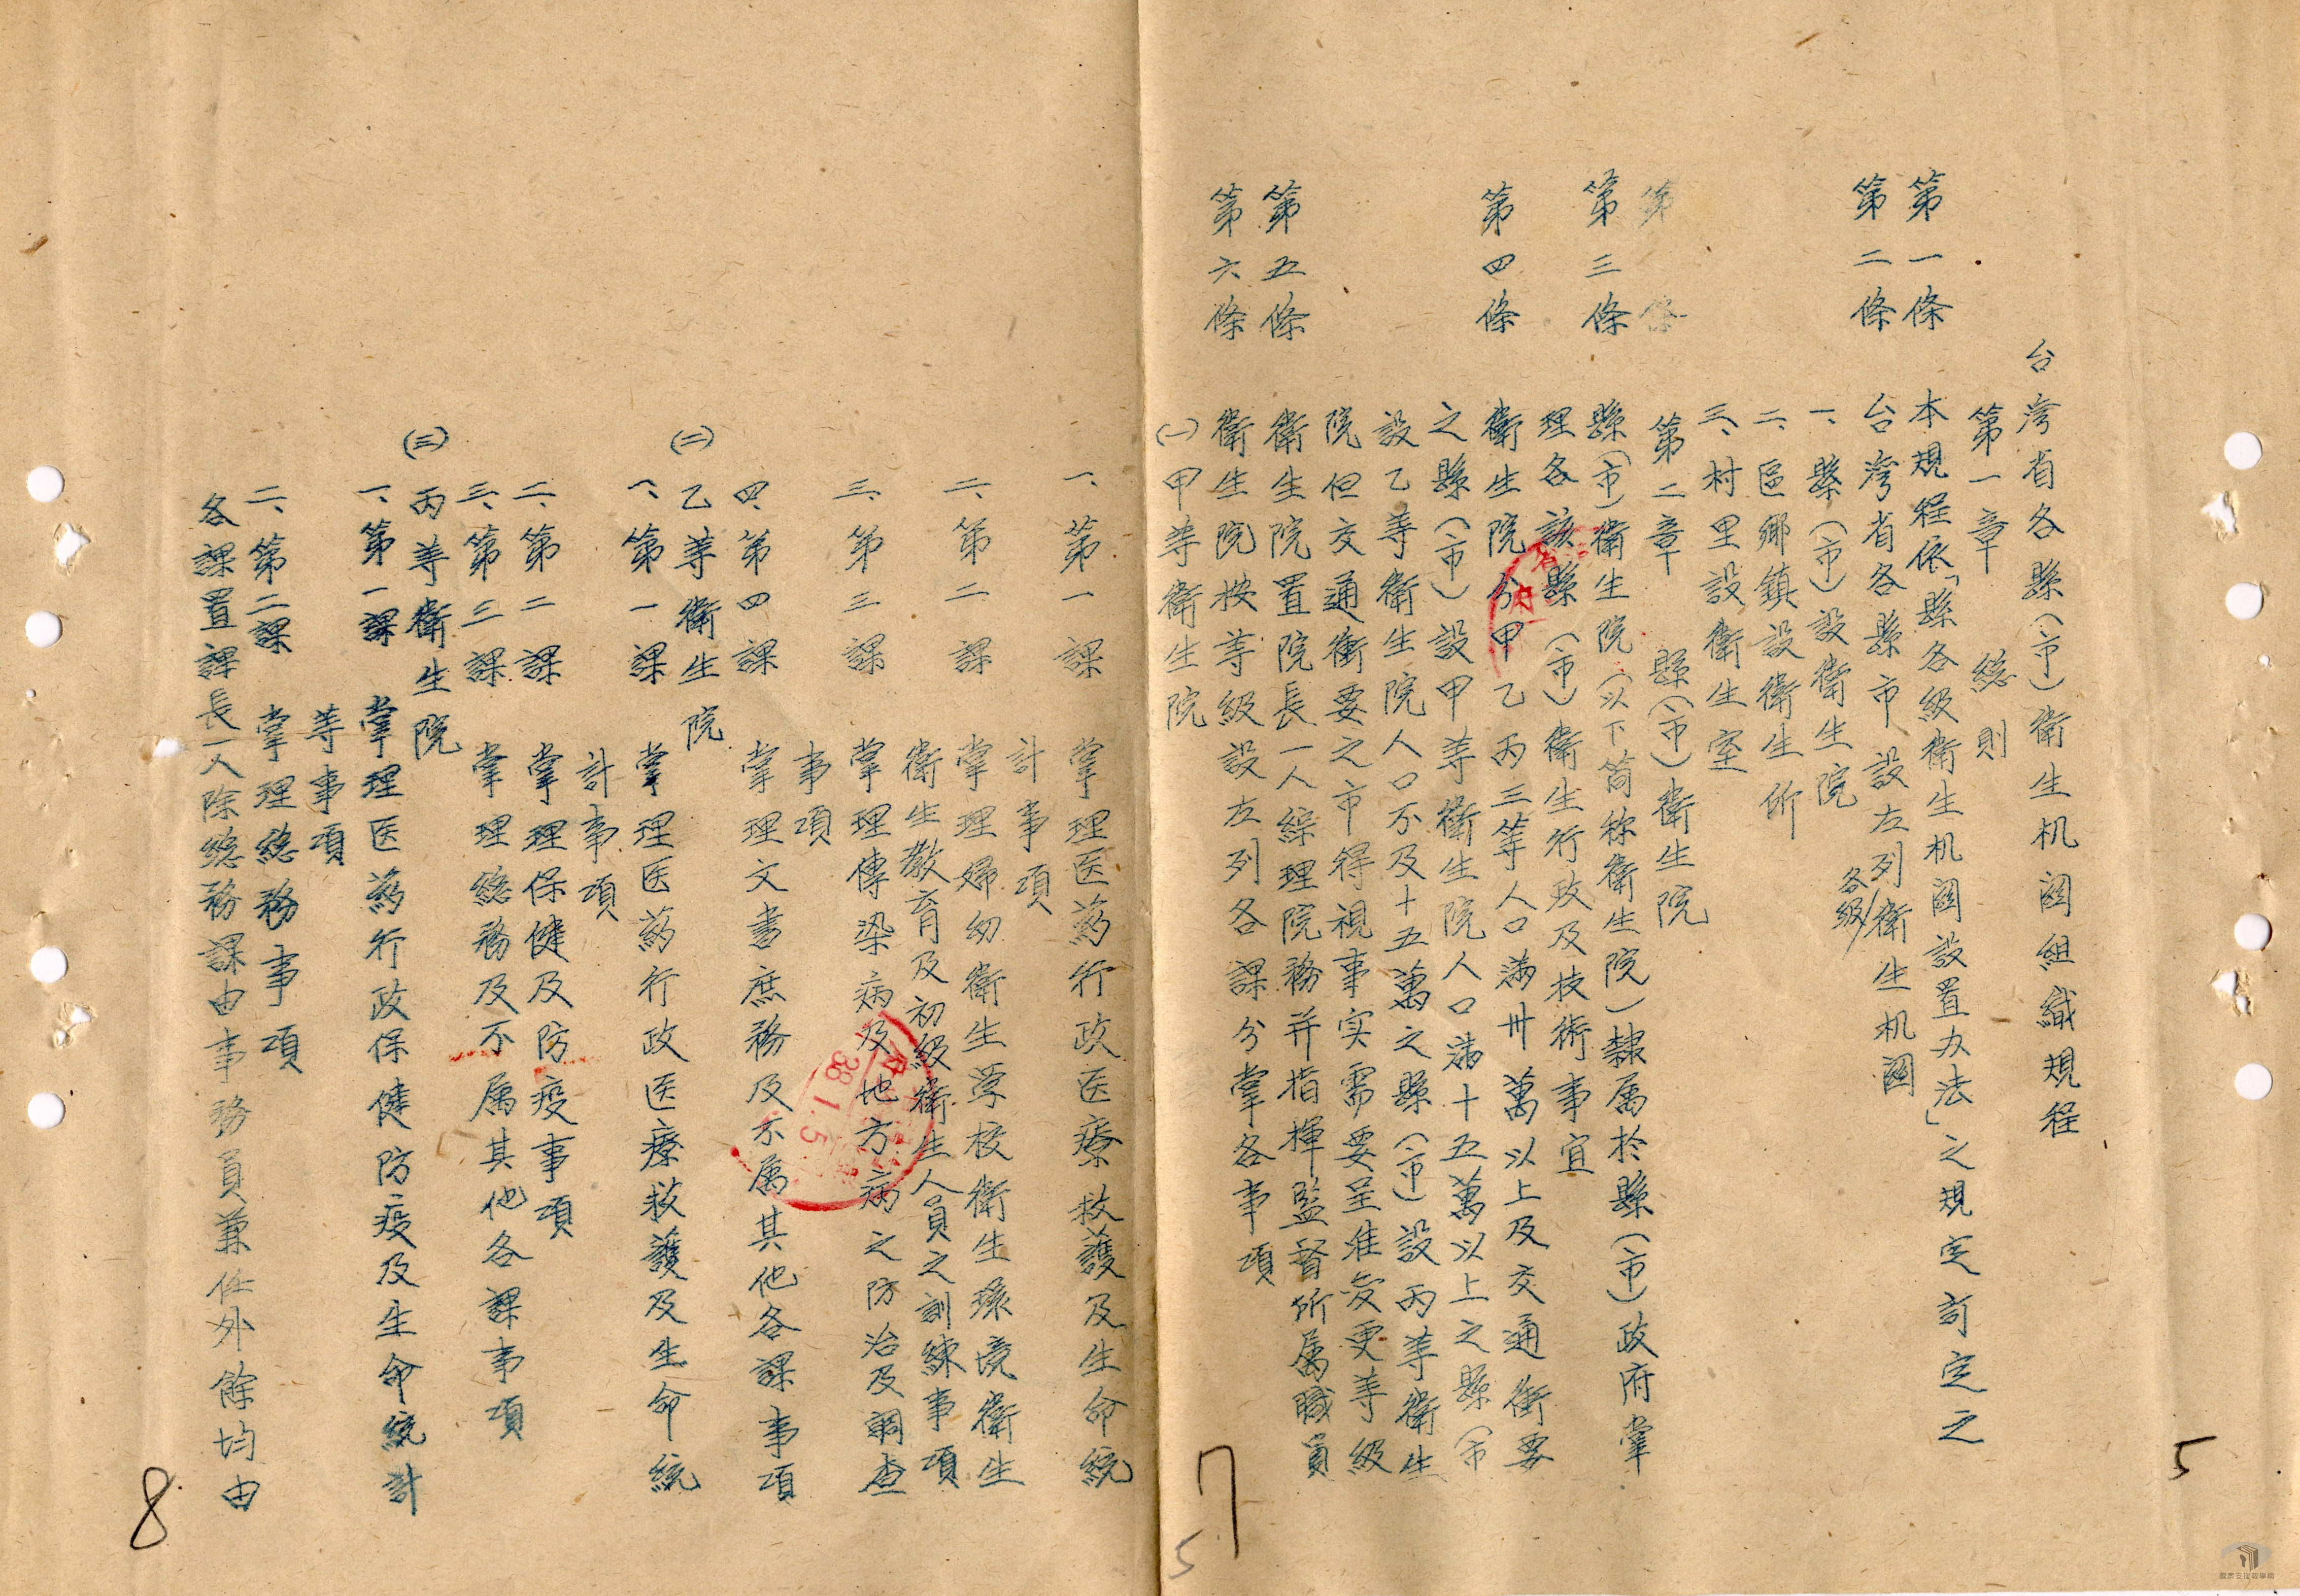 台灣省各縣(市)衛生机関組織規程
第一章　總則
第一條　本規程依「縣各級衛生机関設置办法」之規定訂定之
第二條　台灣省各縣市設左列各級衛生机関
一、縣(市)設衛生院
二、區鄉鎮設衛生所
三、村里設衛生室
第二章　縣(市)衛生院
第　條
第三條　縣(市)衛生院(以下简称衛生院)隸属於縣(市)政府掌
理各該縣(市)衛生行政及技術事宜
第四條　衛生院分甲乙丙三等人口满卅萬以上及交通衝要
之縣(市)設甲等衛生院人口满十五萬以上之縣(市
設乙等衛生院人口不及十五萬之縣(市)設丙等衛生
院但交通衝要之市得視事实需要呈准变更等級
第五條　衛生院置院長一人綜理院務并指揮監督所属職員
第六條　衛生院按等級設左列各課分掌各事項
(一)甲等衛生院
一、第一課　掌理医葯行政医療救護及生命統
計事項
二、第二課　掌理婦幼衛生学校衛生環境衛生
衛生教育及初級衛生人員之訓練事項
三、第三課　掌理傳染病及地方病之防治及調查
事項
四、第四課　掌理文書庶務及不属其他各課事項
(二)乙等衛生院
一、第一課　掌理医葯行政医療救護及生命統
計事項
二、第二課　掌理保健及防疫事項
三、第三課　掌理總務及不属其他各課事項
(三)丙等衛生院
一、第一課　掌理医葯行政保健防疫及生命統計
等事項
二、第二課　掌理總務事項
各課置課長一人除總務課由事務員兼任外餘均由
38.1.5
7
5
8
5